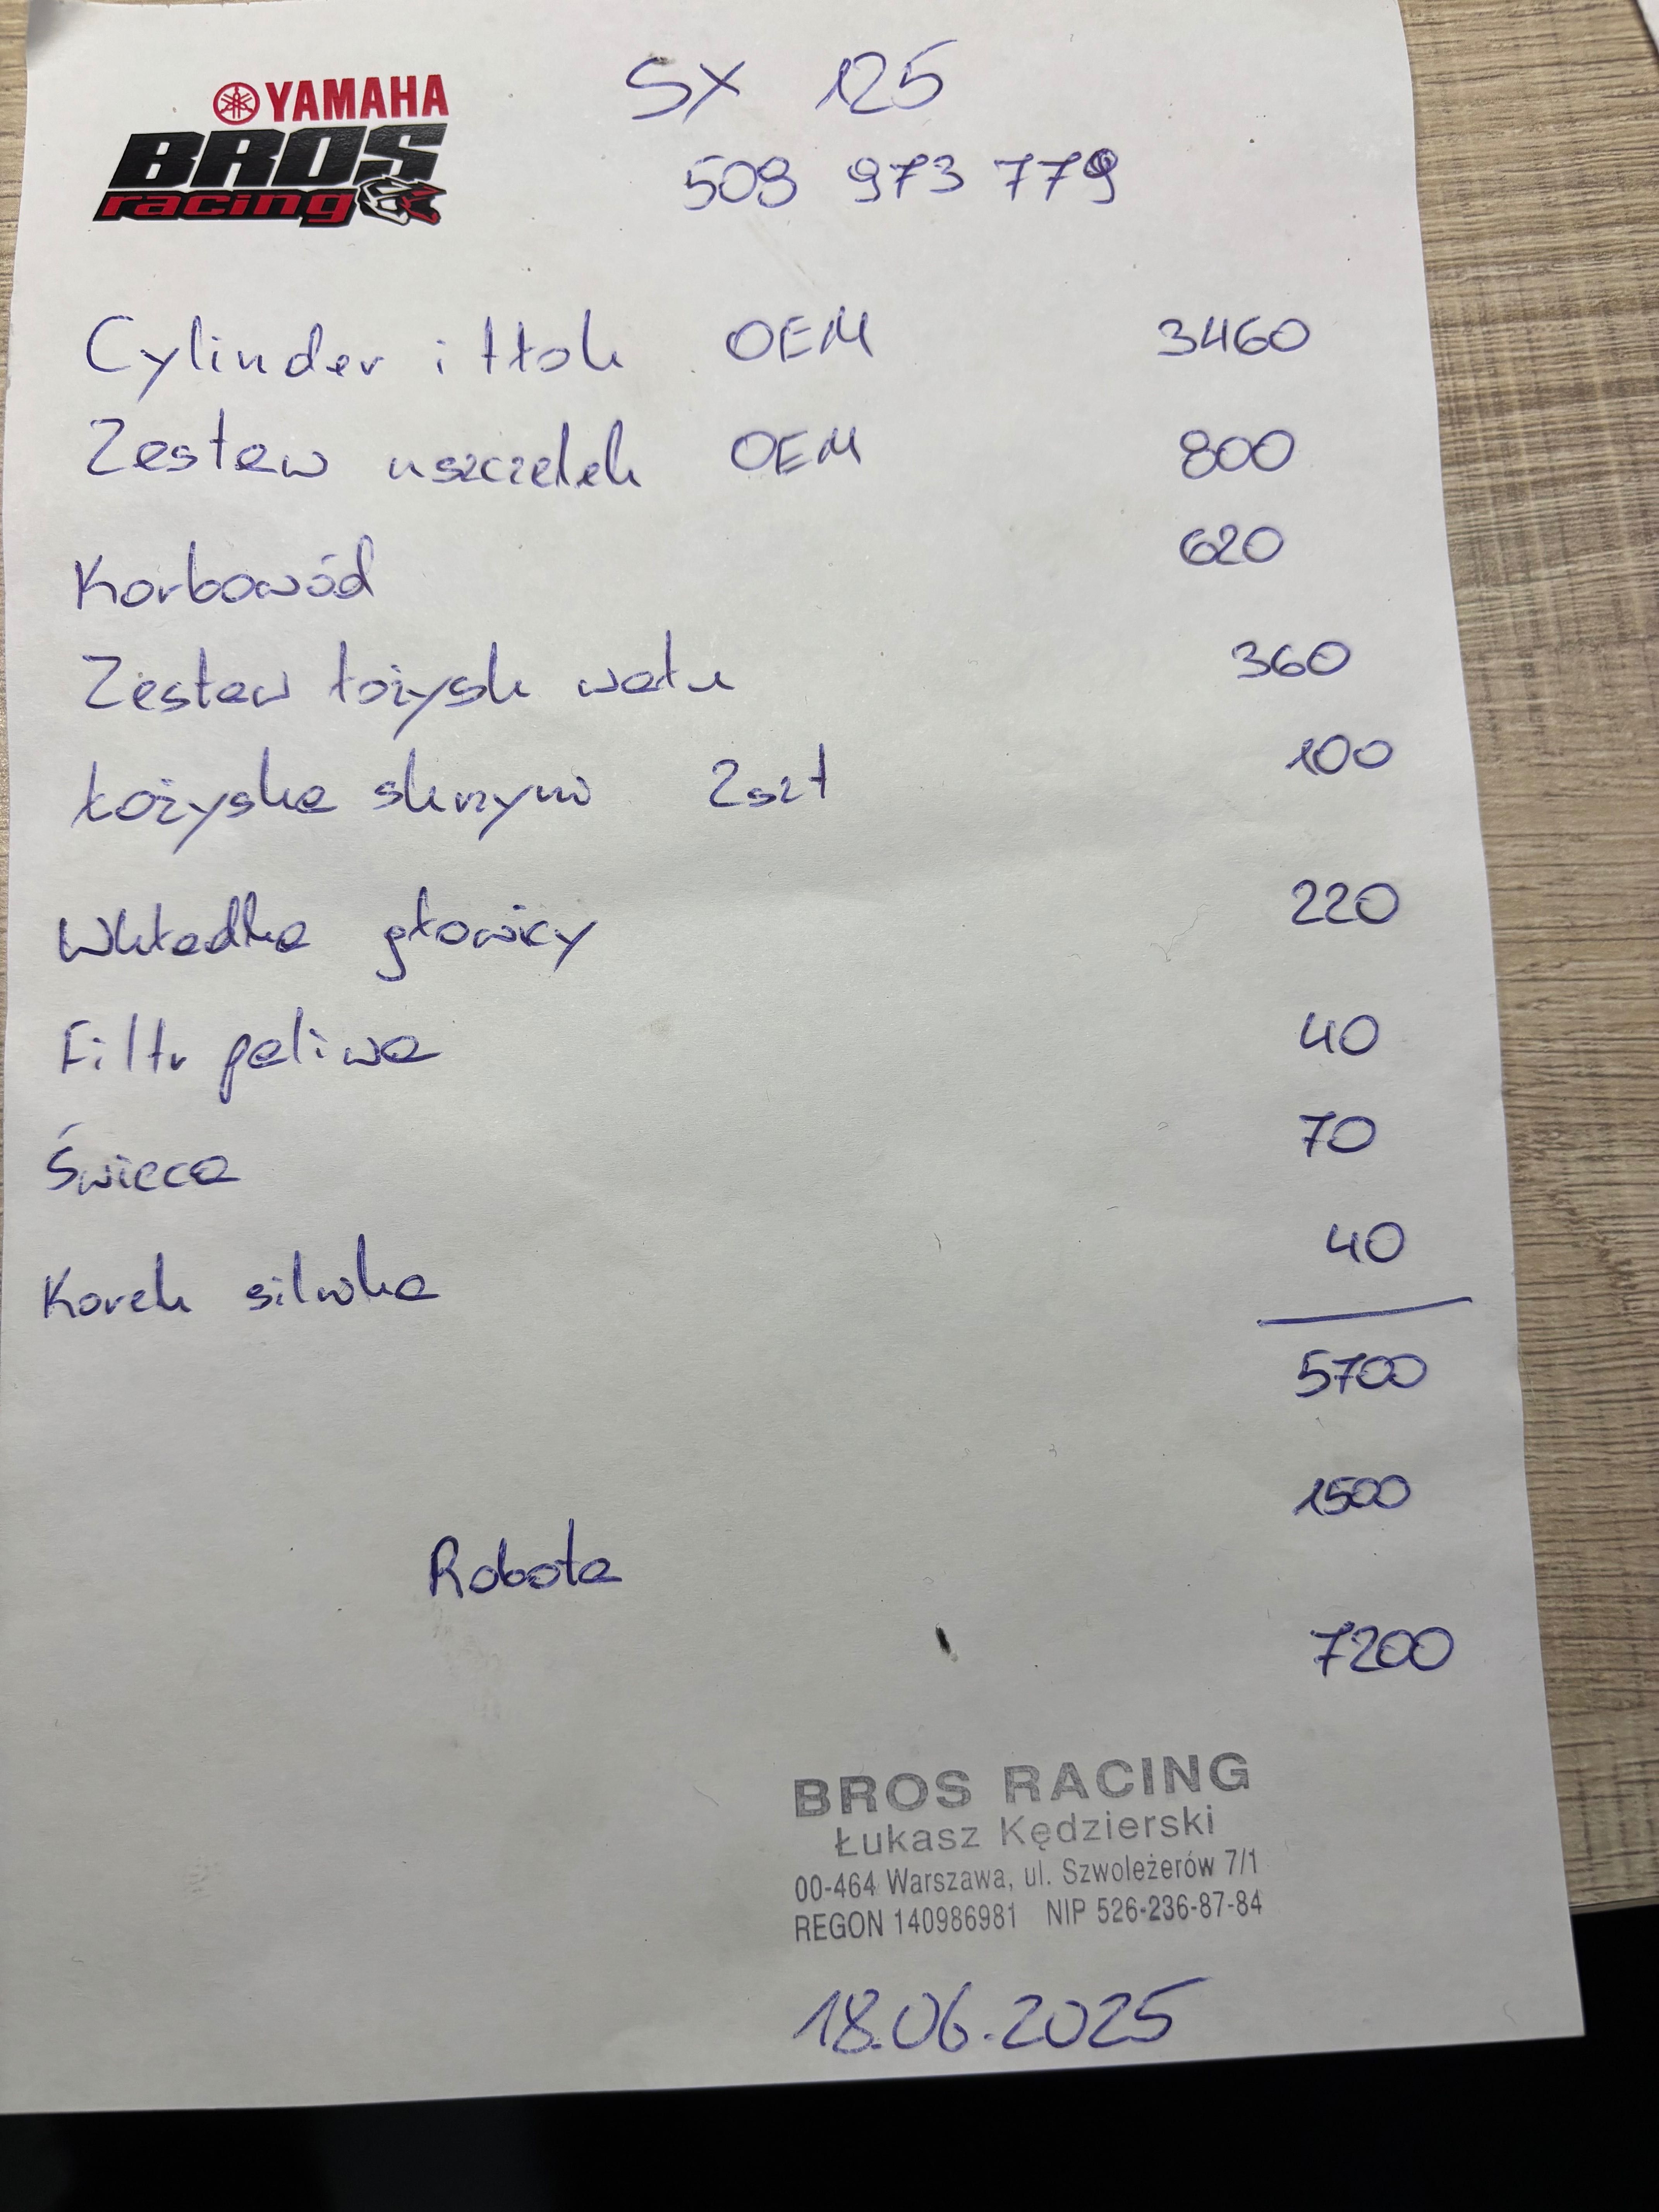 YAMAHA
BROS
racing
SX 125
509 973 779
Cylinder i tłok OEM 3460
Zestaw uszczelek OEM 800
Korbowód 620
Zestaw łożysk wału 360
Łożyska skrzyni 2szt 100
Wkładka głowicy 220
Filtr paliwa 40
Świeca 70
Korek silnika 40
5700
Robota 1500
7200
BROS RACING
Łukasz Kędzierski
00-464 Warszawa, ul. Szwoleżerów 7/1
REGON 140986981 NIP 526-236-87-84
18.06.2025